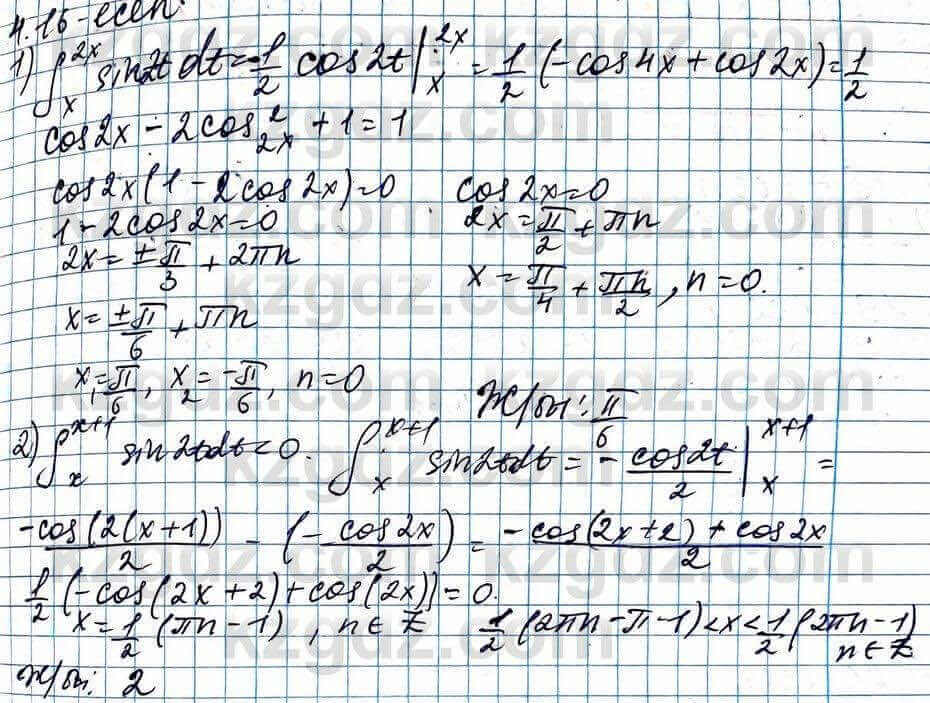 4.16-есеп.
1) ∫ₓ²ˣ sin2t dt = -1/2 cos2t |ₓ²ˣ = 1/2 (-cos4x + cos2x) = 1/2
cos2x - 2cos²2x + 1 = 1
cos2x(1 - 2cos2x)=0 cos2x=0
1 - 2cos2x=0 2x = π/2 + πn
2x = ±π/3 + 2πn x = π/4 + πn/2, n=0.
x = ±π/6 + πn
x₁ = π/6, x₂ = -π/6, n=0 Ж/бы: π/6
2) ∫ₓˣ⁺¹ sin2tdt<0. ∫ₓˣ⁺¹ sin2tdt = -cos2t/2 |ₓˣ⁺¹ =
-cos(2(x+1))/2 - (-cos2x/2) = -cos(2x+2) + cos2x/2
1/2 (-cos(2x+2) + cos(2x)) = 0.
x = 1/2 (πn-1), n∈Z 1/2 (2πn-π-1)<x<1/2 (2πn-1)
n∈Z
Ж/бы: 2
kzgdz.com